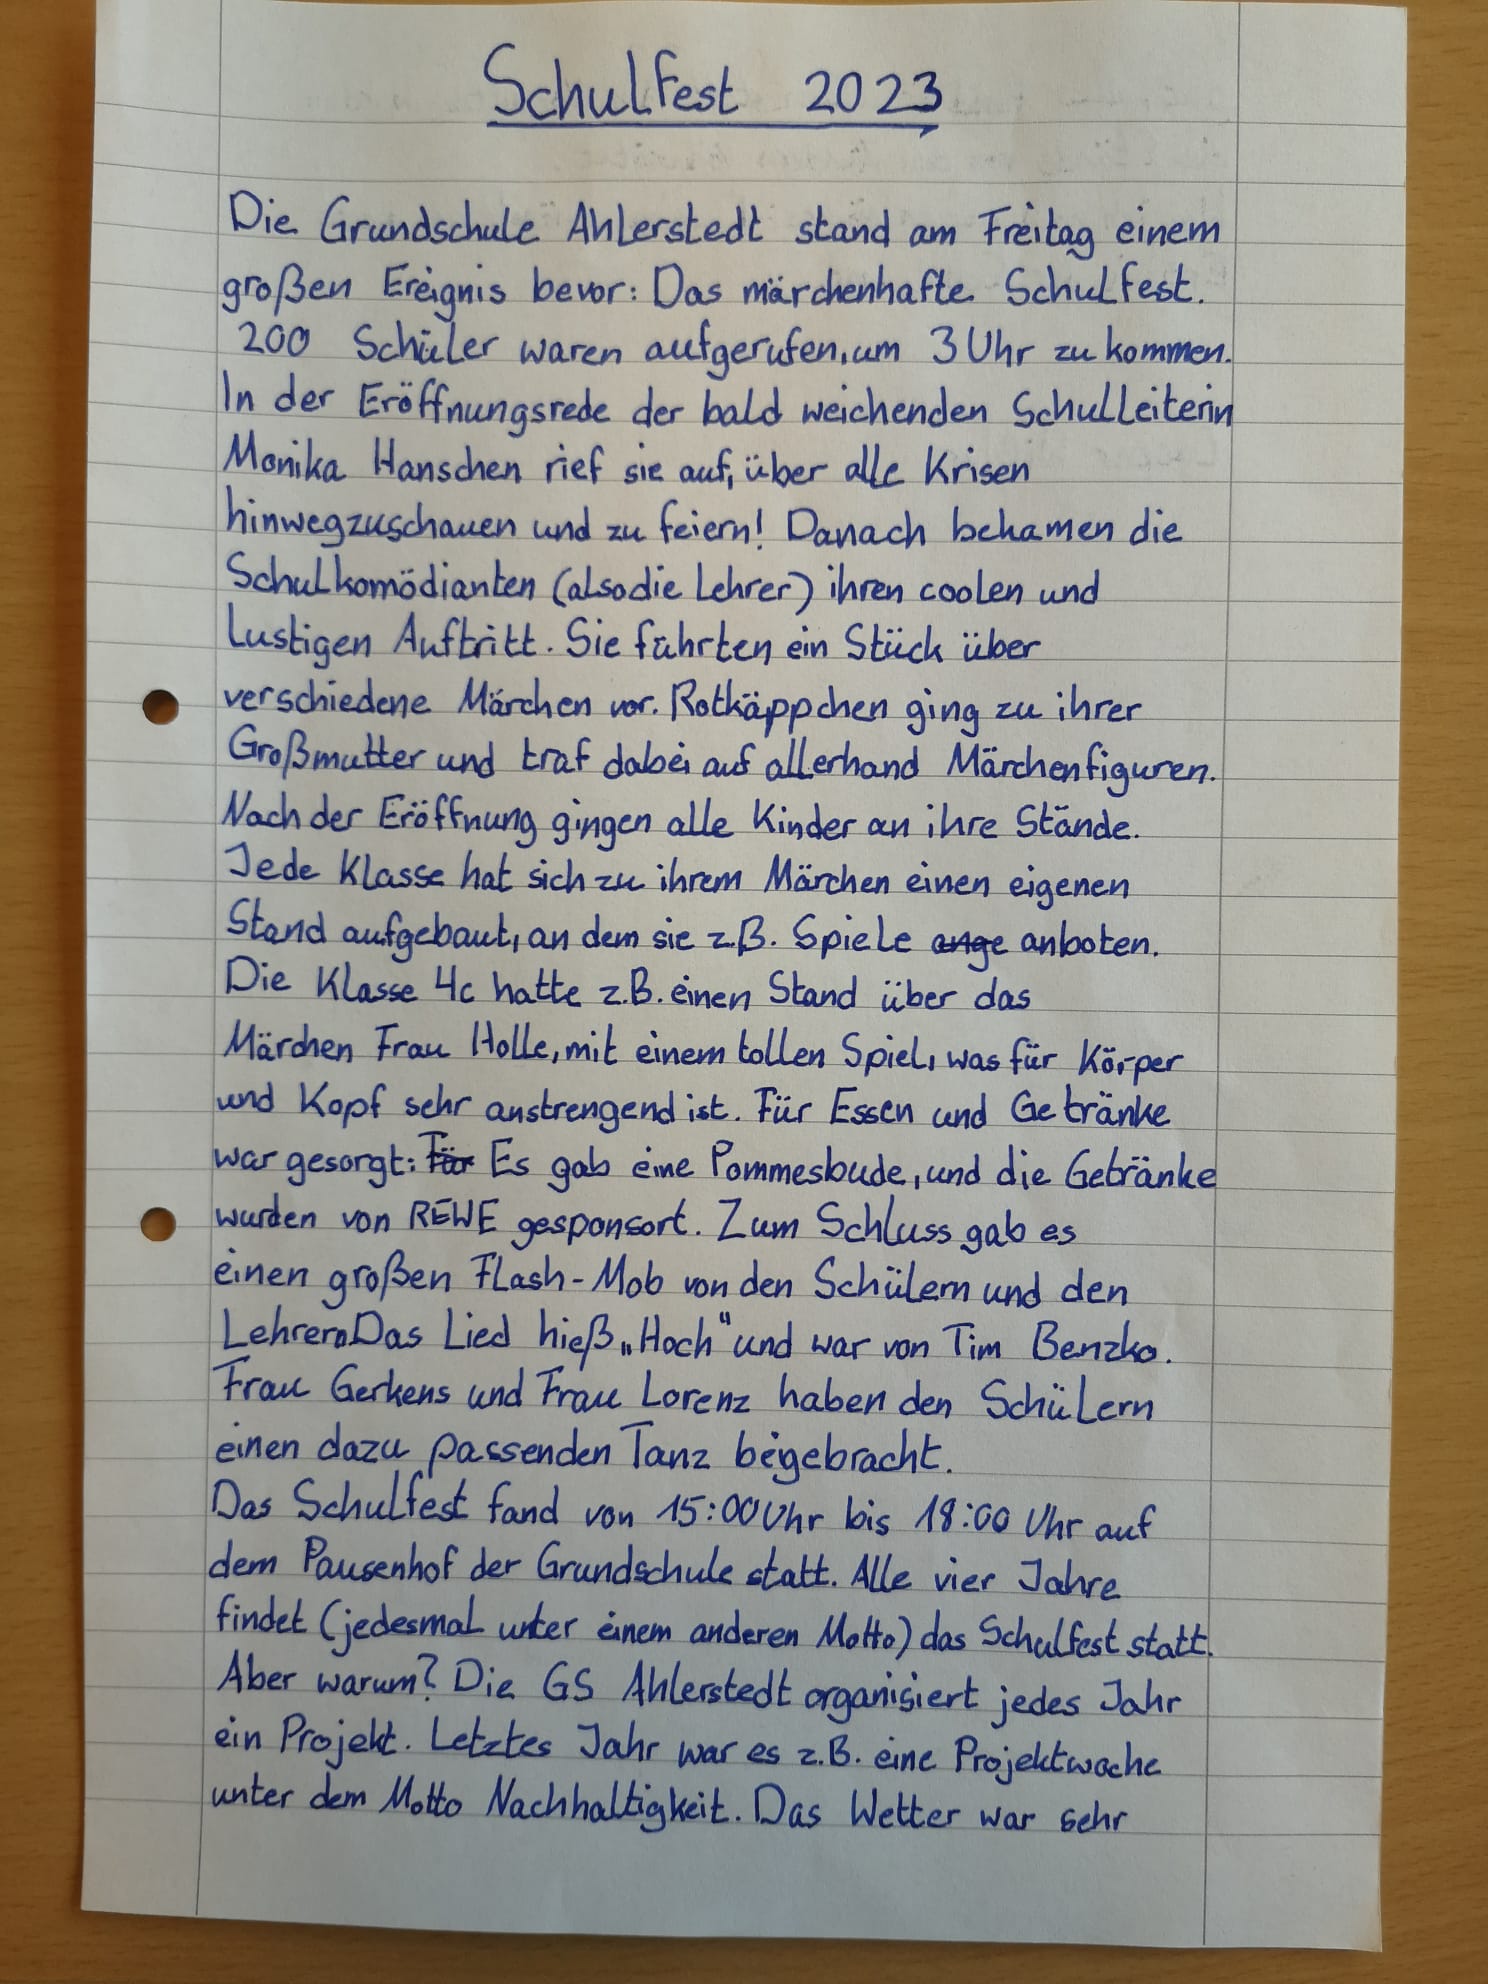 Schulfest 2023
Die Grundschule Ahlerstedt stand am Freitag einem
großen Ereignis bevor: Das märchenhafte Schulfest.
200 Schüler waren aufgerufen, um 3 Uhr zu kommen.
In der Eröffnungsrede der bald weichenden Schulleiterin
Monika Hanschen rief sie auf, über alle Krisen
hinwegzuschauen und zu feiern! Danach bekamen die
Schulkomödianten (also die Lehrer) ihren coolen und
lustigen Auftritt. Sie führten ein Stück über
verschiedene Märchen vor. Rotkäppchen ging zu ihrer
Großmutter und traf dabei auf allerhand Märchenfiguren.
Nach der Eröffnung gingen alle Kinder an ihre Stände.
Jede Klasse hat sich zu ihrem Märchen einen eigenen
Stand aufgebaut, an dem sie z.B. Spiele ange anboten.
Die Klasse 4c hatte z.B. einen Stand über das
Märchen Frau Holle, mit einem tollen Spiel, was für Körper
und Kopf sehr anstrengend ist. Für Essen und Getränke
war gesorgt: Für Es gab eine Pommesbude, und die Getränke
wurden von REWE gesponsort. Zum Schluss gab es
einen großen Flash-Mob von den Schülern und den
Lehrern. Das Lied hieß „Hoch" und war von Tim Benzko.
Frau Gerkens und Frau Lorenz haben den Schülern
einen dazu passenden Tanz beigebracht.
Das Schulfest fand von 15:00 Uhr bis 18:00 Uhr auf
dem Pausenhof der Grundschule statt. Alle vier Jahre
findet (jedesmal unter einem anderen Motto) das Schulfest statt.
Aber warum? Die GS Ahlerstedt organisiert jedes Jahr
ein Projekt. Letztes Jahr war es z.B. eine Projektwoche
unter dem Motto Nachhaltigkeit. Das Wetter war sehr